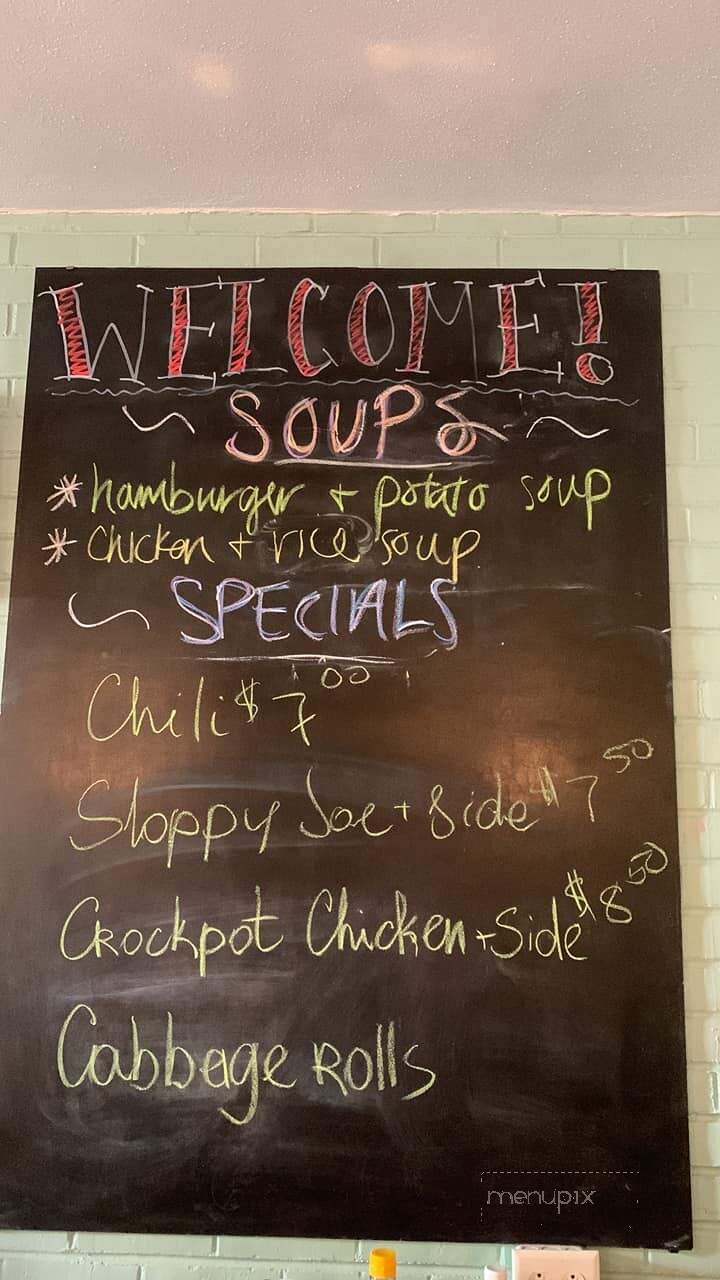 WELCOME!
SOUPS
* hamburger + potato soup
* chicken + rice soup
SPECIALS
Chili $7.00
Sloppy Joe + Side $7.50
Crockpot Chicken + Side $8.50
Cabbage Rolls
menupix